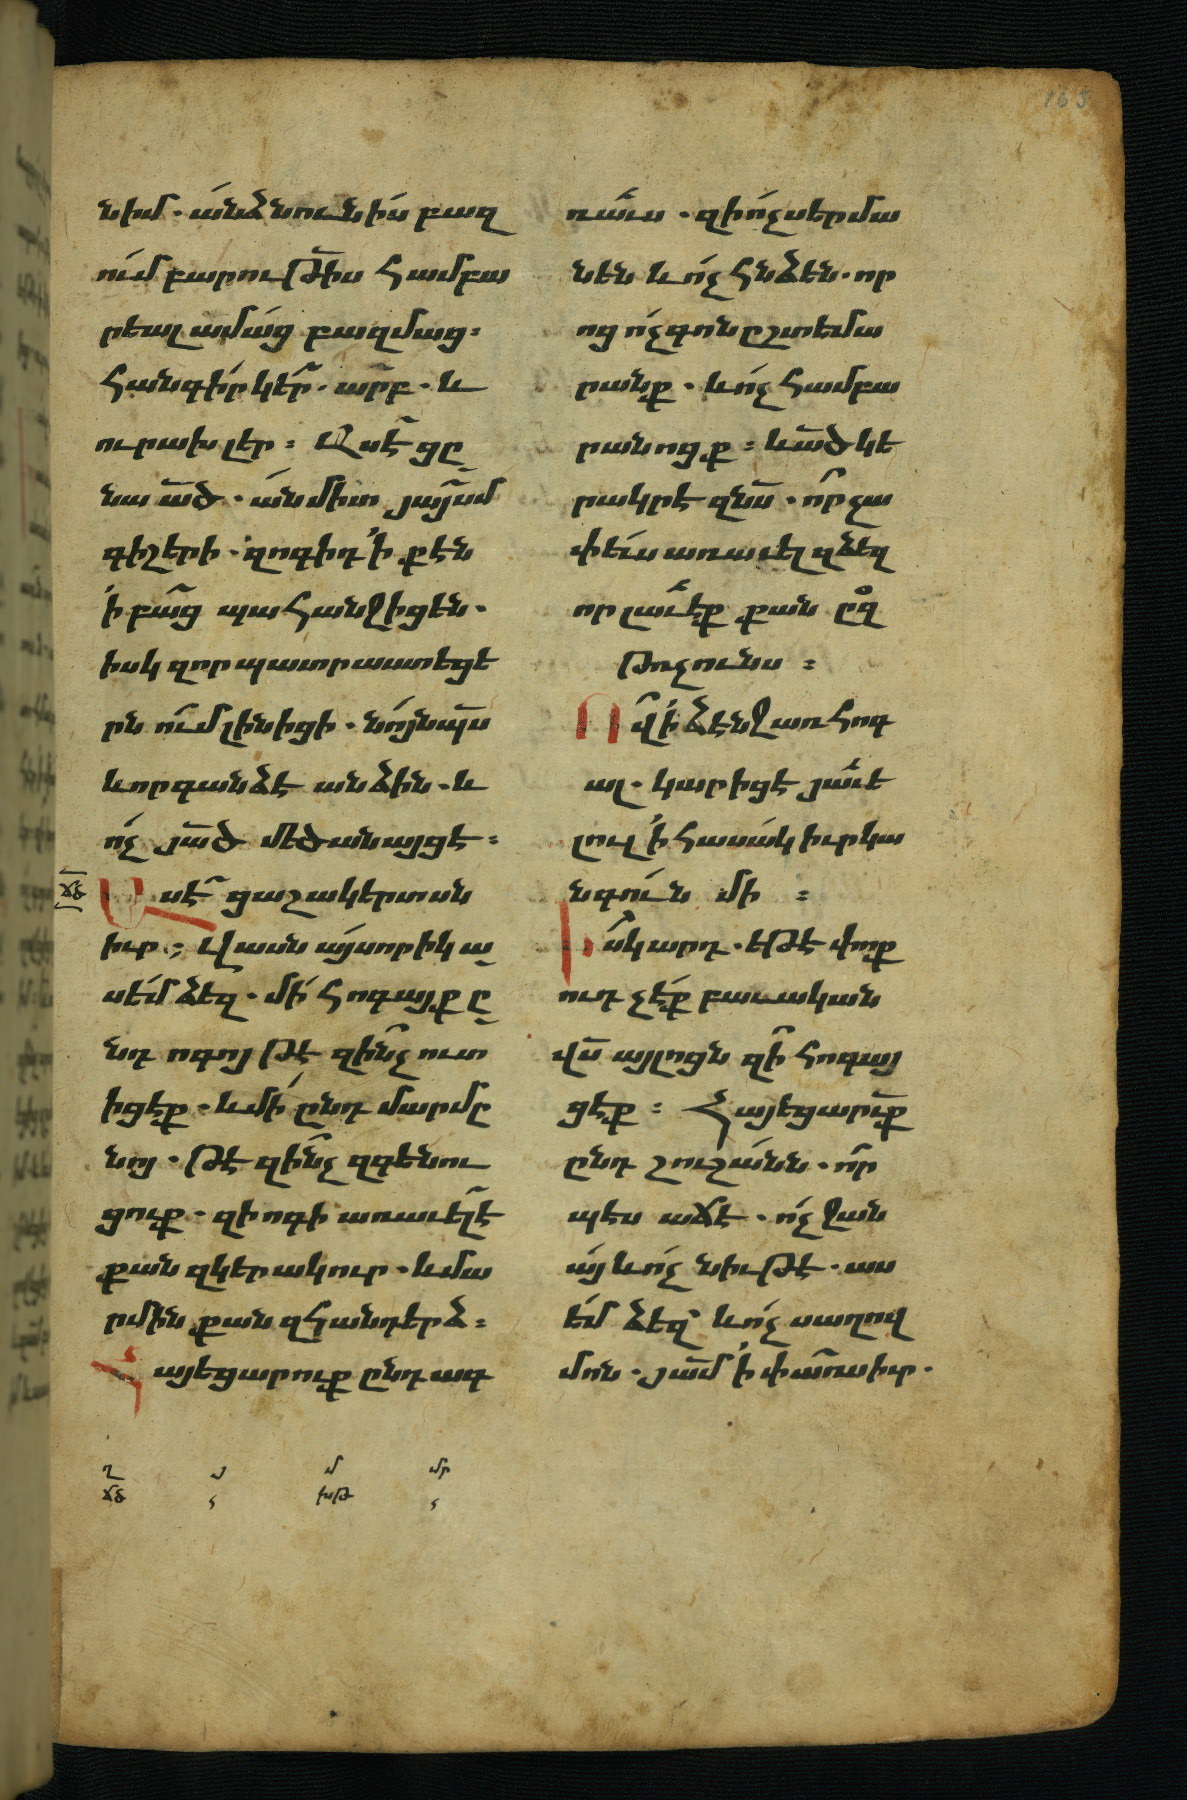 նիմ. ա՛նձնունի՛ս բազ
ո՛ւմ բարութի̄ս համբա
րեալ ամա՛ց բազմաց։
հանգի՛ր կեր̄. ար̄բ. և
ուրախ լեր։ Ասէ̄ ցը
նա ած̄. ա՛նմիտ յայս̄մ
գիշերի. զոգիդ ՛ի քէն
՛ի բաց̄ պահանջիցեն.
իսկ զոր պատրաստեցե
րն ո՛ւմ լինիցի. նո՛յնպս̄
և որ գանձէ անձին. և
ո՛չ յած̄ մեծանայցէ։
Ասէ̄ ցաշակերտսն
իւր։ Վասն ա՛յսորիկ ա
սե՛մ ձեզ. մի՛ հոգայք ը
նդ ոգոյ թէ զի՛նչ ուտ
իցէք. և մի՛ ընդ մարմը
նոյ. թէ զի՛նչ զգենու
ցուք. զի ոգի առաւել̄ է
քան զկերակուր. և մա
րմին քան զհանդերձ։
Հայեցարուք ընդ ագ
ռա՛ւս. զի ո՛չ սերմա
նեն և ո՛չ հնձեն. որ
ոց ո՛չ գոն ըշտեմա
րանք. և ո՛չ համբա
րանոցք։ և ած̄ կե
րակրէ զնս̄. ո՛ր չա
փեւս առաւել զձեզ
որ լաւ էք քան զը
թռչունս։
Ո՛վ ՛ի ձէնջ առ հոգ
ալ. կարիցէ յաւե
լուլ ՛ի հասա՛կ իւր կա
նգո՛ւն մի ։
Իսկ արդ. եթէ փոք
ուդ չէ՛ք բաւական
վս̄ այլոցն զի՛ հոգայ
ցէք։ Հայեցարո՛ւք
ընդ շուշա՛նն. ո՛ր
պէս աճէ. ո՛չ ջան
ա՛յ և ո՛չ նիւթէ. աս
ե՛մ ձեզ՝ և ո՛չ սաղով
մոն. յամ̄ ՛ի փառս̄ իւր.
ճձ
ղ յ մ մր
ճձ խթ